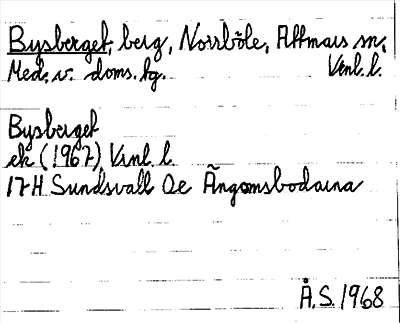 Bysberget, berg, Norrböle, Attmars sn,
Med. v. doms. hg. Vnl. l.
Bysberget
ek (1967) Vnl. l.
17H Sundsvall Oe Ängomsbodarna
Å.S. 1968